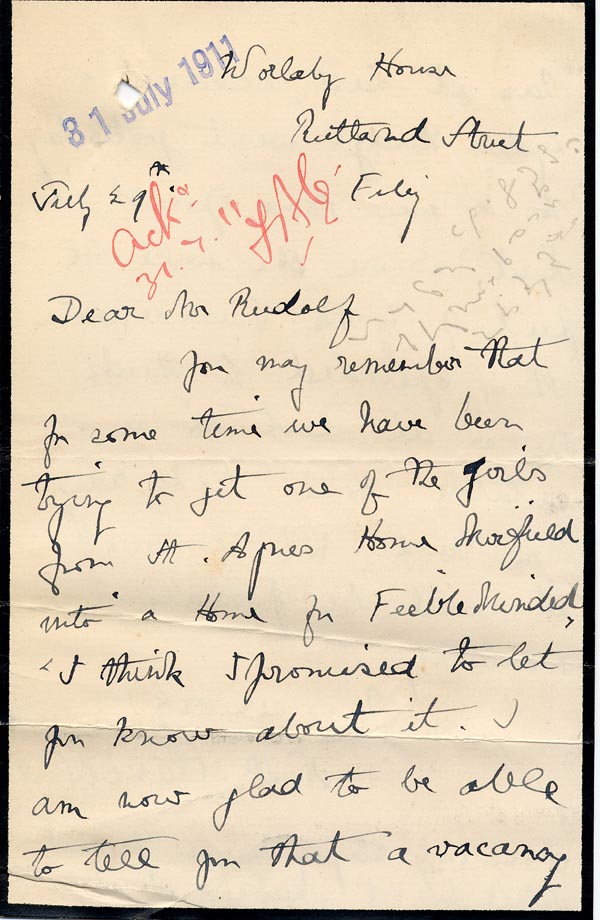 31 July 1911
Worlaby House
Rutland Street
July 29th Filey
ackd
31.7.11
Dear Mr Rudolf
you may remember that
for some time we have been
trying to get one of the girls
from St. Agnes Home Mirfield
into a Home for Feeble Minded,
& I think I promised to let
you know about it. I
am now glad to be able
to tell you that a vacancy